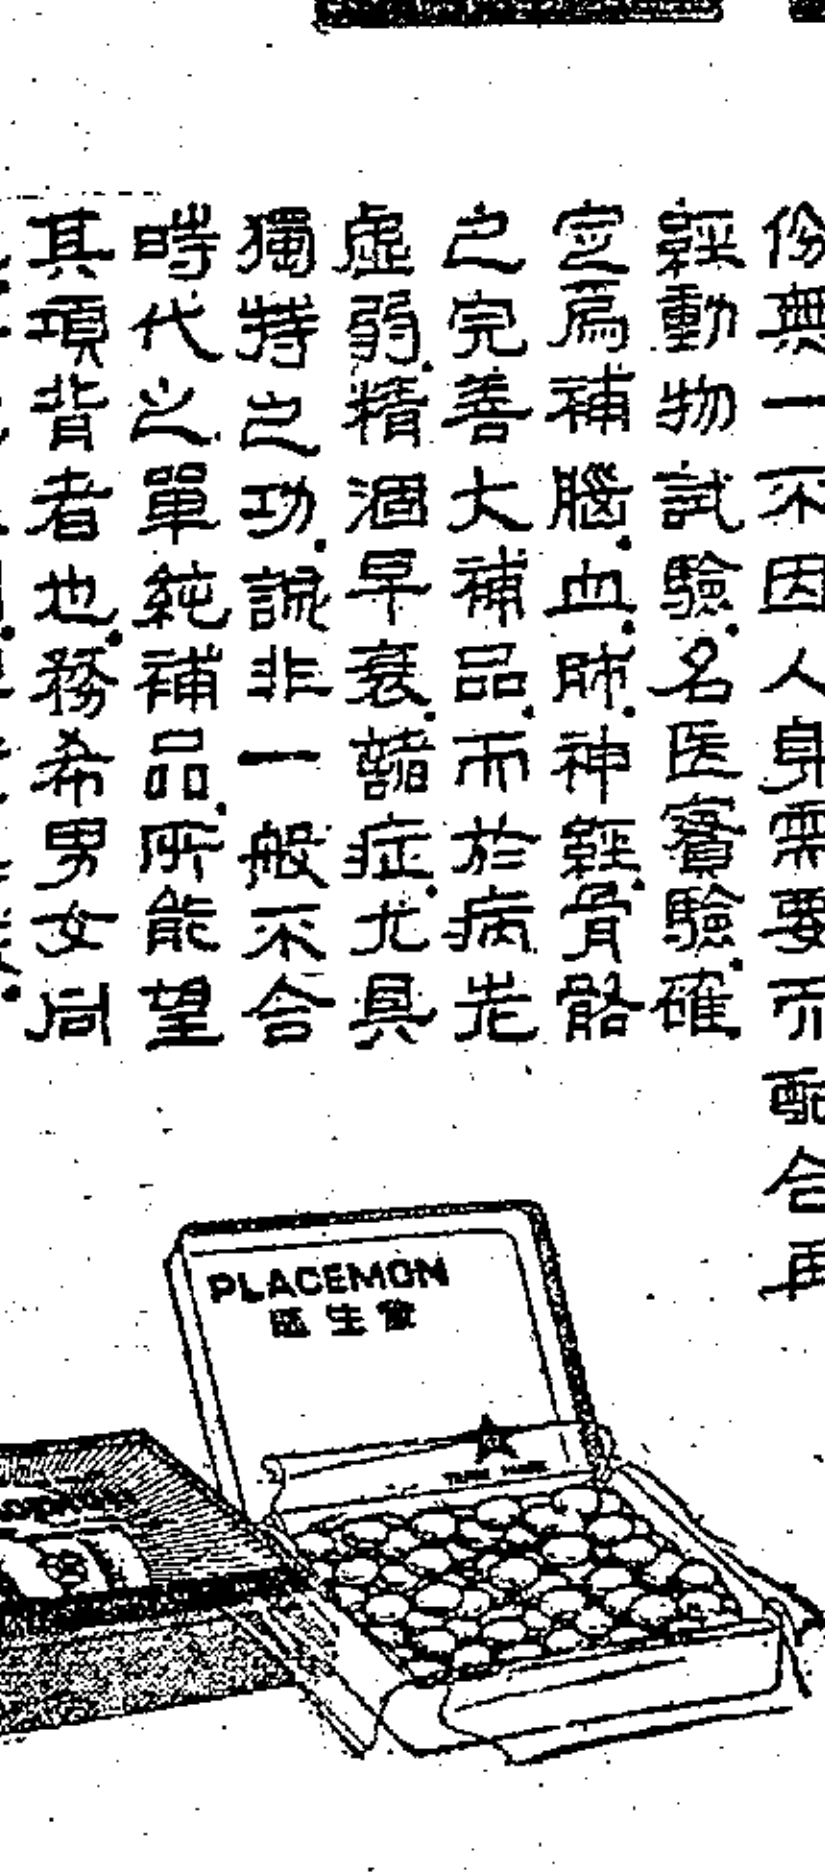 份無一不因人身需要而配合再
經動物試驗.名医實驗.確
定爲補腦.血.肺.神經.骨骼
之完善大補品.而於病老
虛弱.精涸早衰.諸症.尤具
獨特之功.誠非一般不合
時代之單純補品.所能望
其項背者也.務希男女同
PLACEMON
胚生蒙
TRADE MARK